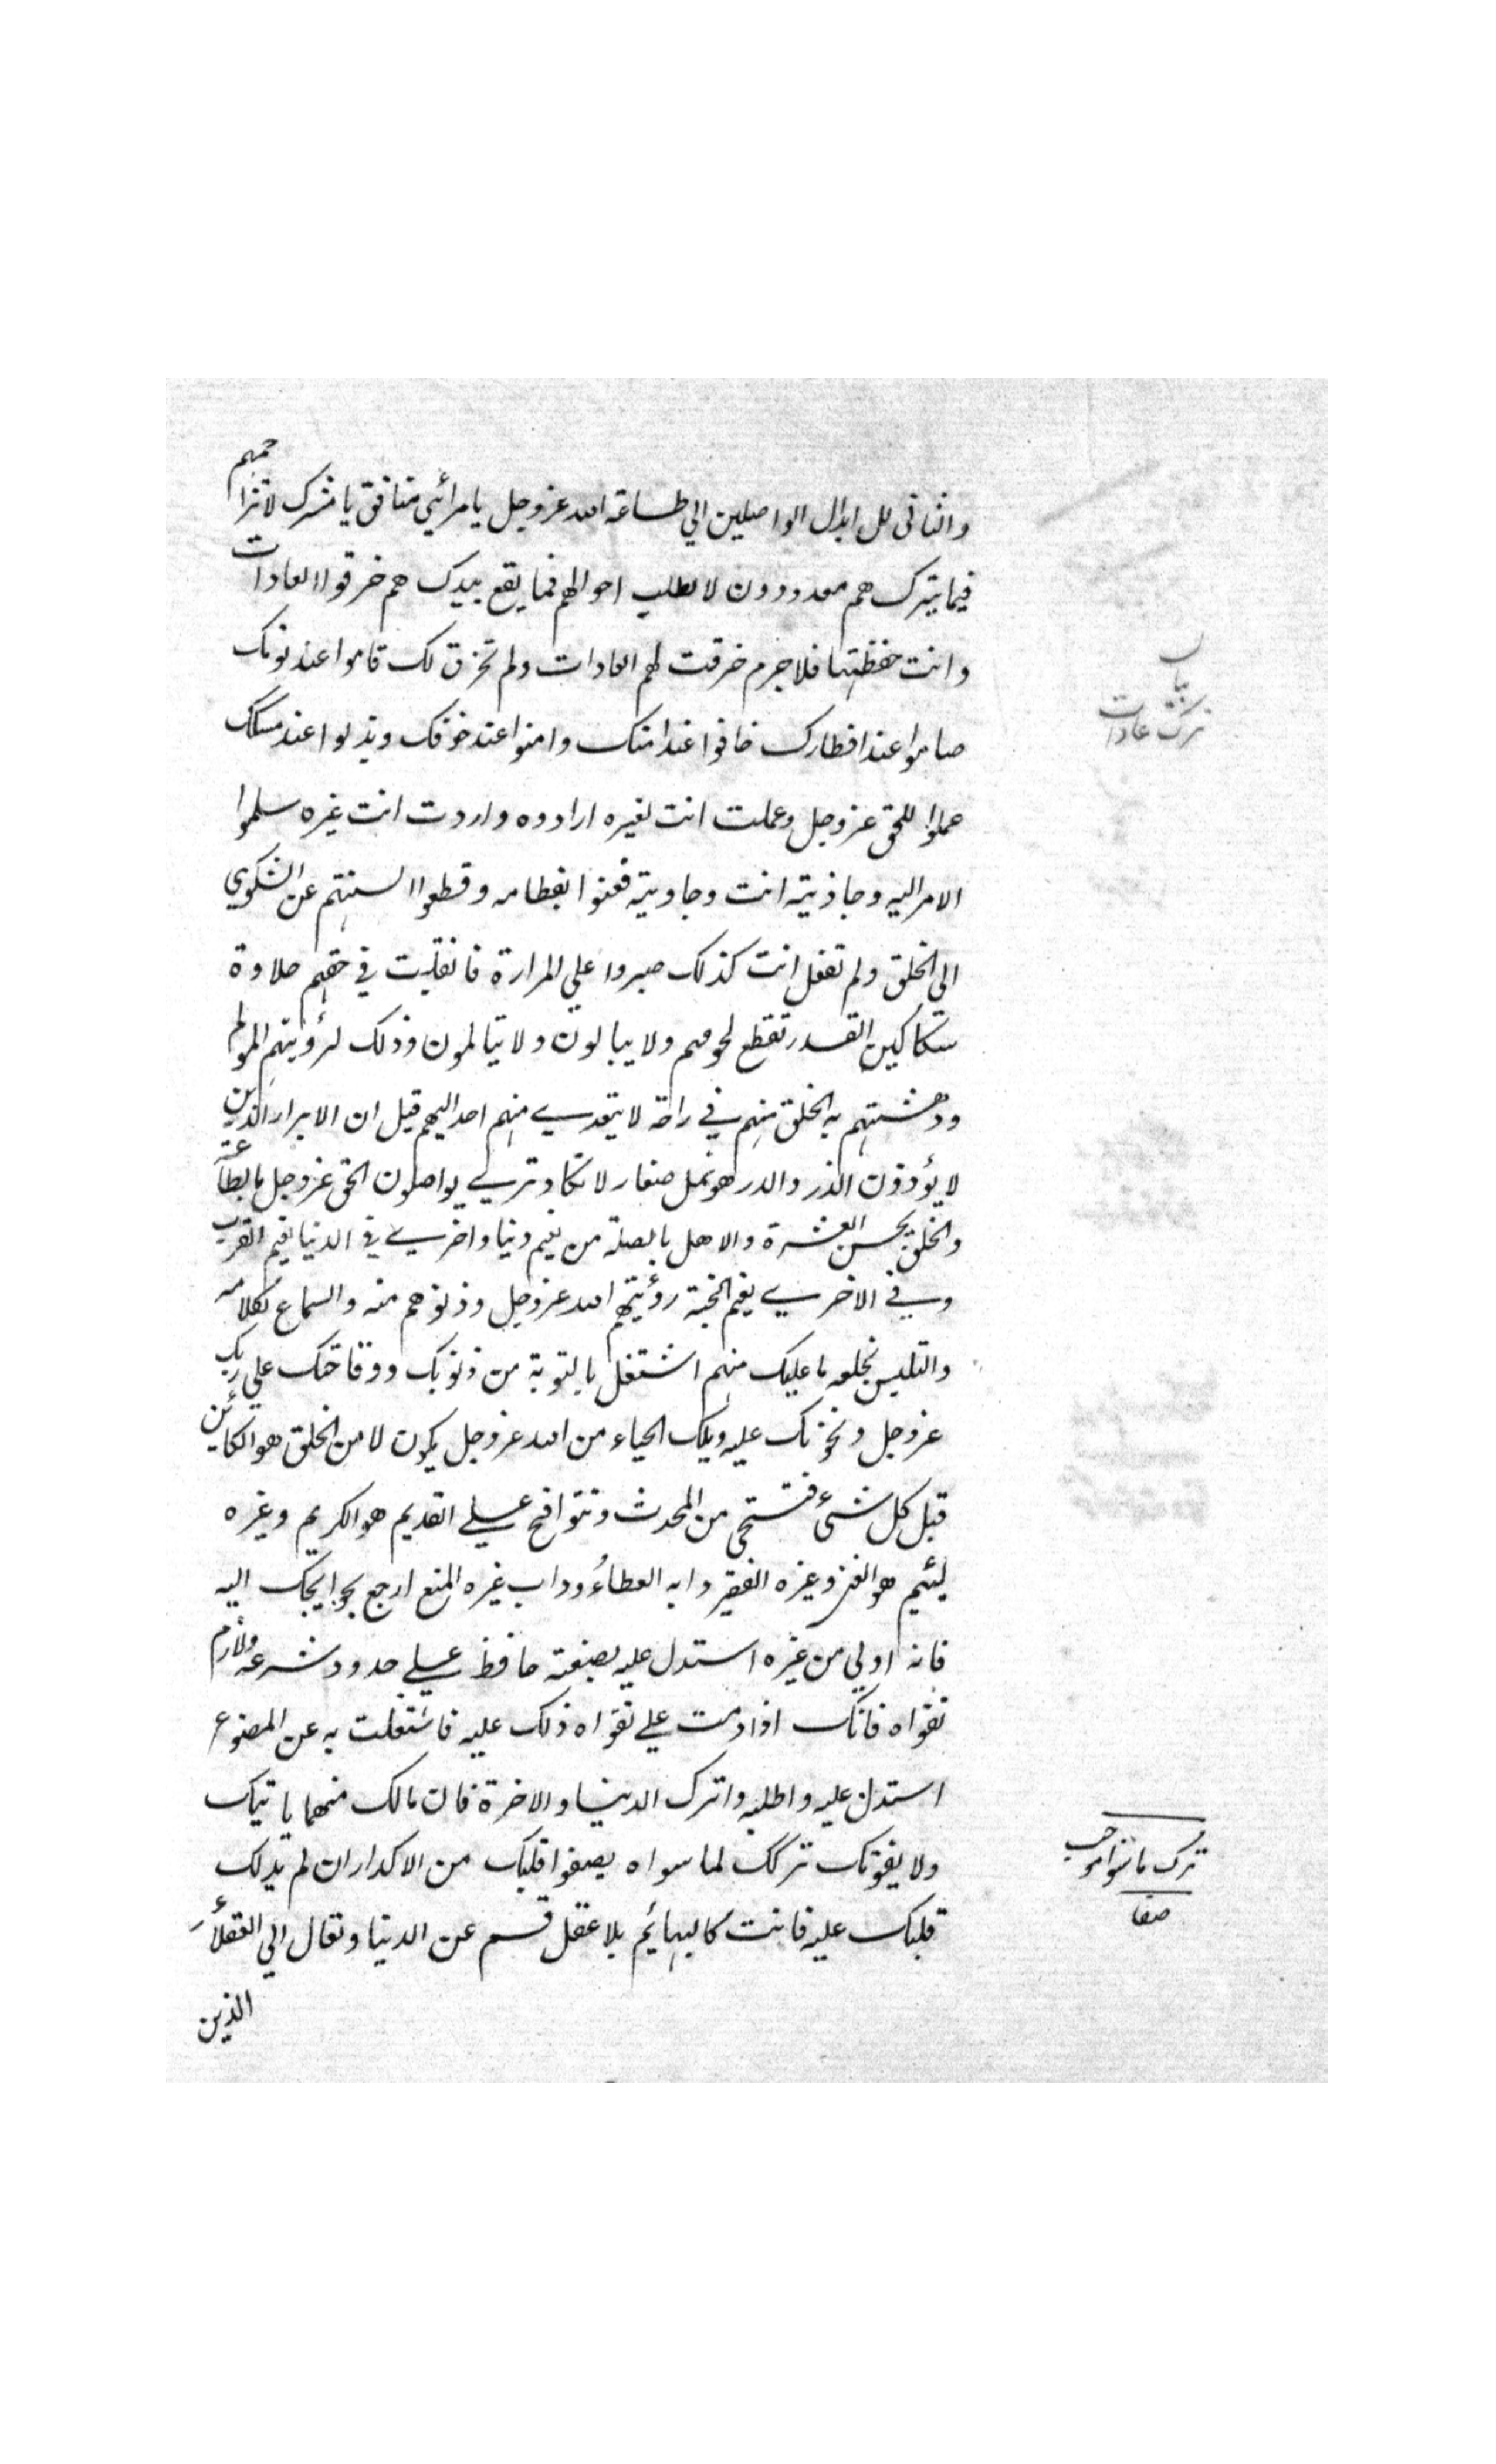 والثانی للابدال الواصلين الي طاعة الله عزوجل يا مرائي منافق يا مشرک لاتزاحمهم
فيما بيترک هم معدودون لا تطلب احوالهم فما يقع بيدک هم خرقوا العادات
وانت حفظتها فلاجرم خرقت لهم العادات ولم تخرق لک قاموا عند نومک
صاموا عند افطارک خافوا عند امنک وامنوا عند خوفک وبذلوا عند مسکک
عملوا للحق عزوجل وعملت انت لغيره ارادوه واردت انت غيره سلموا
الامر اليه وجاذبته انت وجاويته فعنوا بقطامه وقطعوا السنتهم عن الشکوي
الی الخلق ولم تفعل انت کذلک صبروا علي المرارة فانقلبت في حقهم حلاوة
سکاکين القدر تقطع لحومهم ولا يبالون ولا يتالمون وذلک لرؤيتهم المولم
ودهشتهم به الخلق منهم في راحة لا يتعدي منهم احد اليهم قيل ان الابرار الذين
لا يؤذون الذر والدر هو نمل صغار لا تکاد تري يواصلون الحق عزوجل بالطاعة
والخلق بحسن العشرة والاهل بالصلة من نعيم دنيا واخري في الدنيا نعيم القرب
وفي الاخري نعيم الجنة رؤيتهم الله عزوجل ودنوهم منه والسماع لکلامه
والتلبس بخلعه ما عليک منهم اشتغل بالتوبة من ذنوبک ووقاحتک علي ربک
عزوجل وتجؤنک عليه ويلک الحياء من الله عزوجل يکون لا من الخلق هو الکائن
قبل کل شئ فتستحي من المحدث وتتواقح علي القديم هو الکريم وغيره
لئيم هو الغني وغيره الفقير دابه العطاء وداب غيره المنع ارجع بحوايجک اليه
فانه اولي من غيره استدل عليه بصنعته حافظ علي حدود شرعه ولازم
تقواه فانک اذا دمت علي تقواه دلک عليه فاشتغلت به عن المصنوع
استدل عليه واطلبه واترک الدنيا والاخرة فان مالک منهما ياتيک
ولا يفوتک ترکک لما سواه يصفوا قلبک من الاکدار ان لم يدلک
قلبک عليه فانت کالبهائم بلا عقل قسم عن الدنيا وتعال الي العقلاء
الذين
ترک عادات
ترک ما سوا
صفا